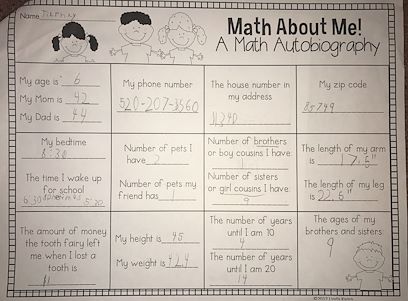 Name Tierney
Math About Me!
A Math Autobiography
My age is 6
My Mom is 42
My Dad is 44
My phone number
520-207-3560
The house number in
my address
11240
My zip code
85749
My bedtime
8:30
The time I wake up
for school
6:30 5:30
Number of pets I
have 2
Number of pets my
friend has 1
Number of brothers
or boy cousins I have:
1
Number of sisters
or girl cousins I have:
9
The length of my arm
is 17.5"
The length of my leg
is 22.5"
The amount of money
the tooth fairy left
me when I lost a
tooth is
$1
My height is 45
My weight is 42.4
The number of years
until I am 10
4
The number of years
until I am 20
14
The ages of my
brothers and sisters
9